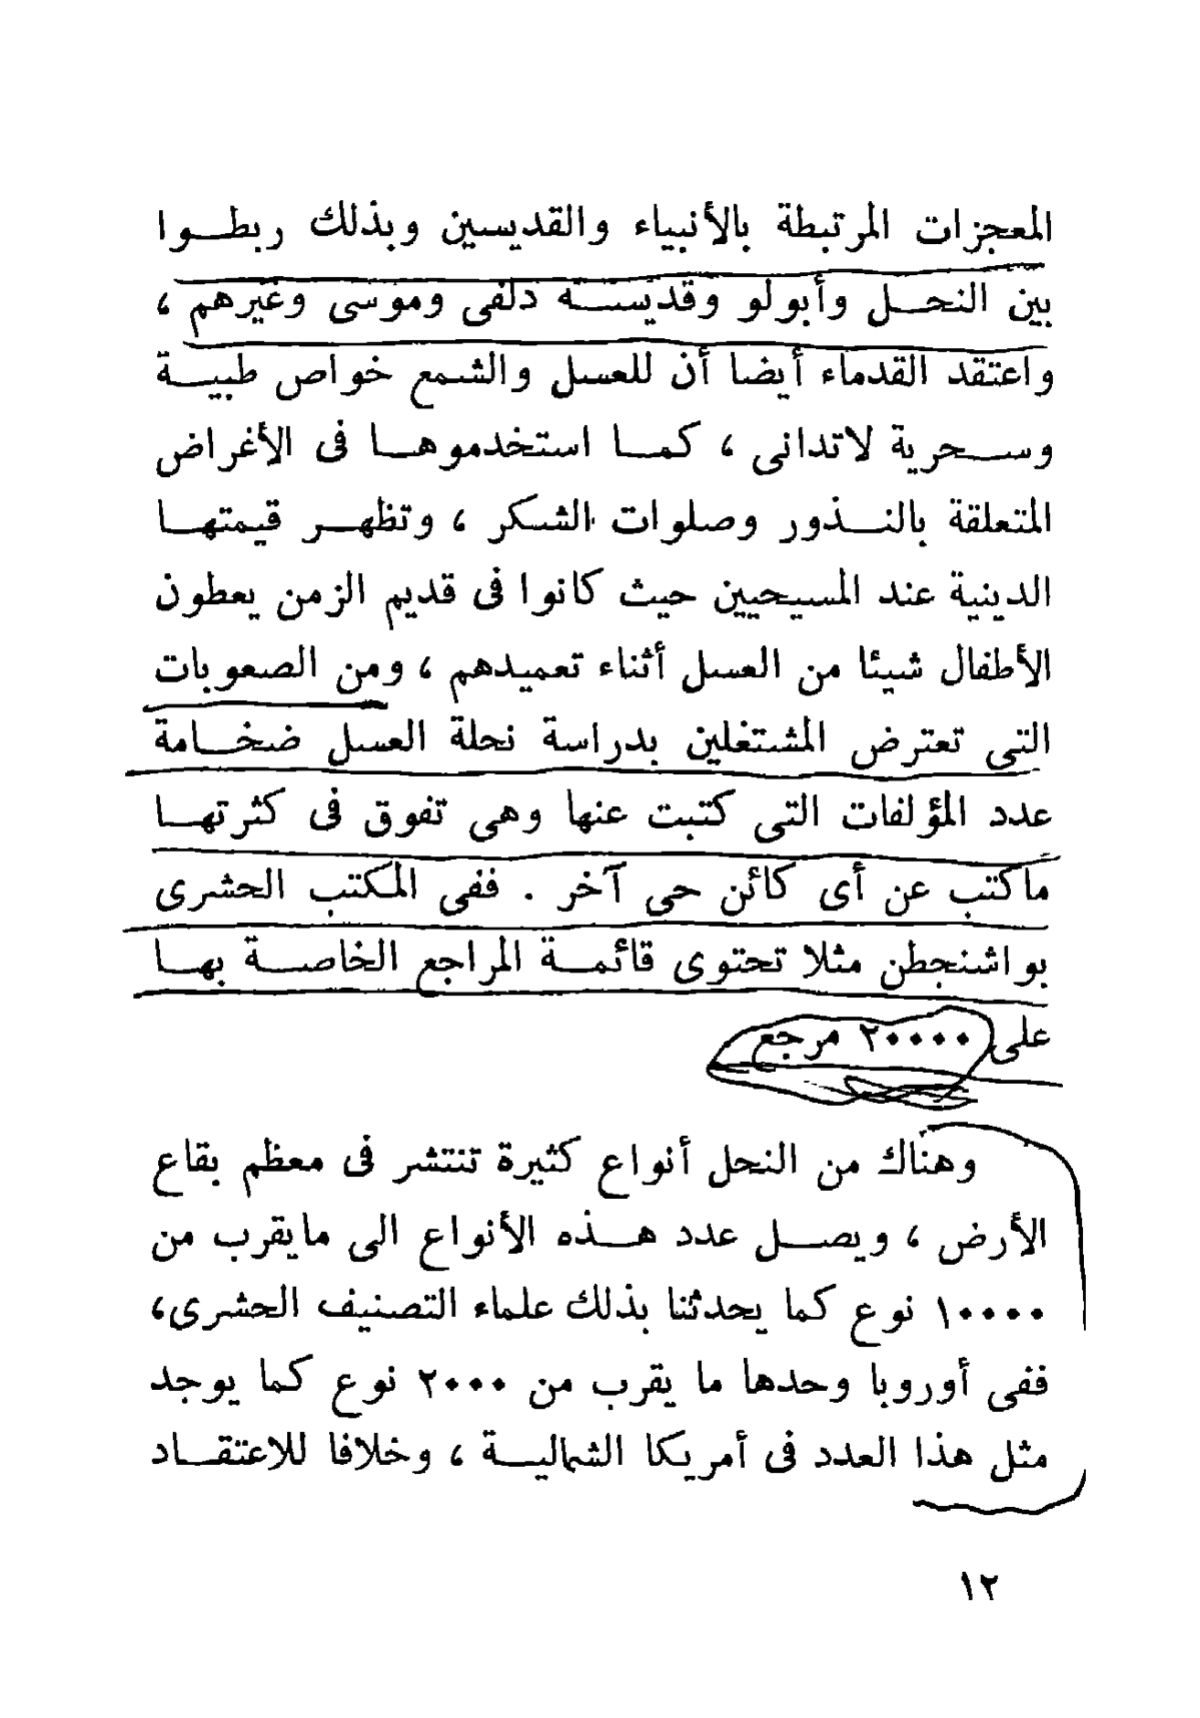 المعجزات المرتبطة بالأنبياء والقديسين وبذلك ربطوا
بين النحل وأبولو وقديسة دلفى وموسى وغيرهم ،
واعتقد القدماء أيضا أن للعسل والشمع خواص طبية
وسحرية لاتدانى ، كما استخدموها فى الأغراض
المتعلقة بالنذور وصلوات الشكر ، وتظهر قيمتها
الدينية عند المسيحيين حيث كانوا فى قديم الزمن يعطون
الأطفال شيئا من العسل أثناء تعميدهم ، ومن الصعوبات
التى تعترض المشتغلين بدراسة نحلة العسل ضخامة
عدد المؤلفات التى كتبت عنها وهى تفوق فى كثرتها
ماكتب عن أى كائن حى آخر . ففى المكتب الحشرى
بواشنجطن مثلا تحتوى قائمة المراجع الخاصة بها
على ٢٠٠٠٠ مرجع
وهناك من النحل أنواع كثيرة تنتشر فى معظم بقاع
الأرض ، ويصل عدد هذه الأنواع الى مايقرب من
١٠٠٠٠ نوع كما يحدثنا بذلك علماء التصنيف الحشرى،
ففى أوروبا وحدها ما يقرب من ٢٠٠٠ نوع كما يوجد
مثل هذا العدد فى أمريكا الشمالية ، وخلافا للاعتقاد
١٢